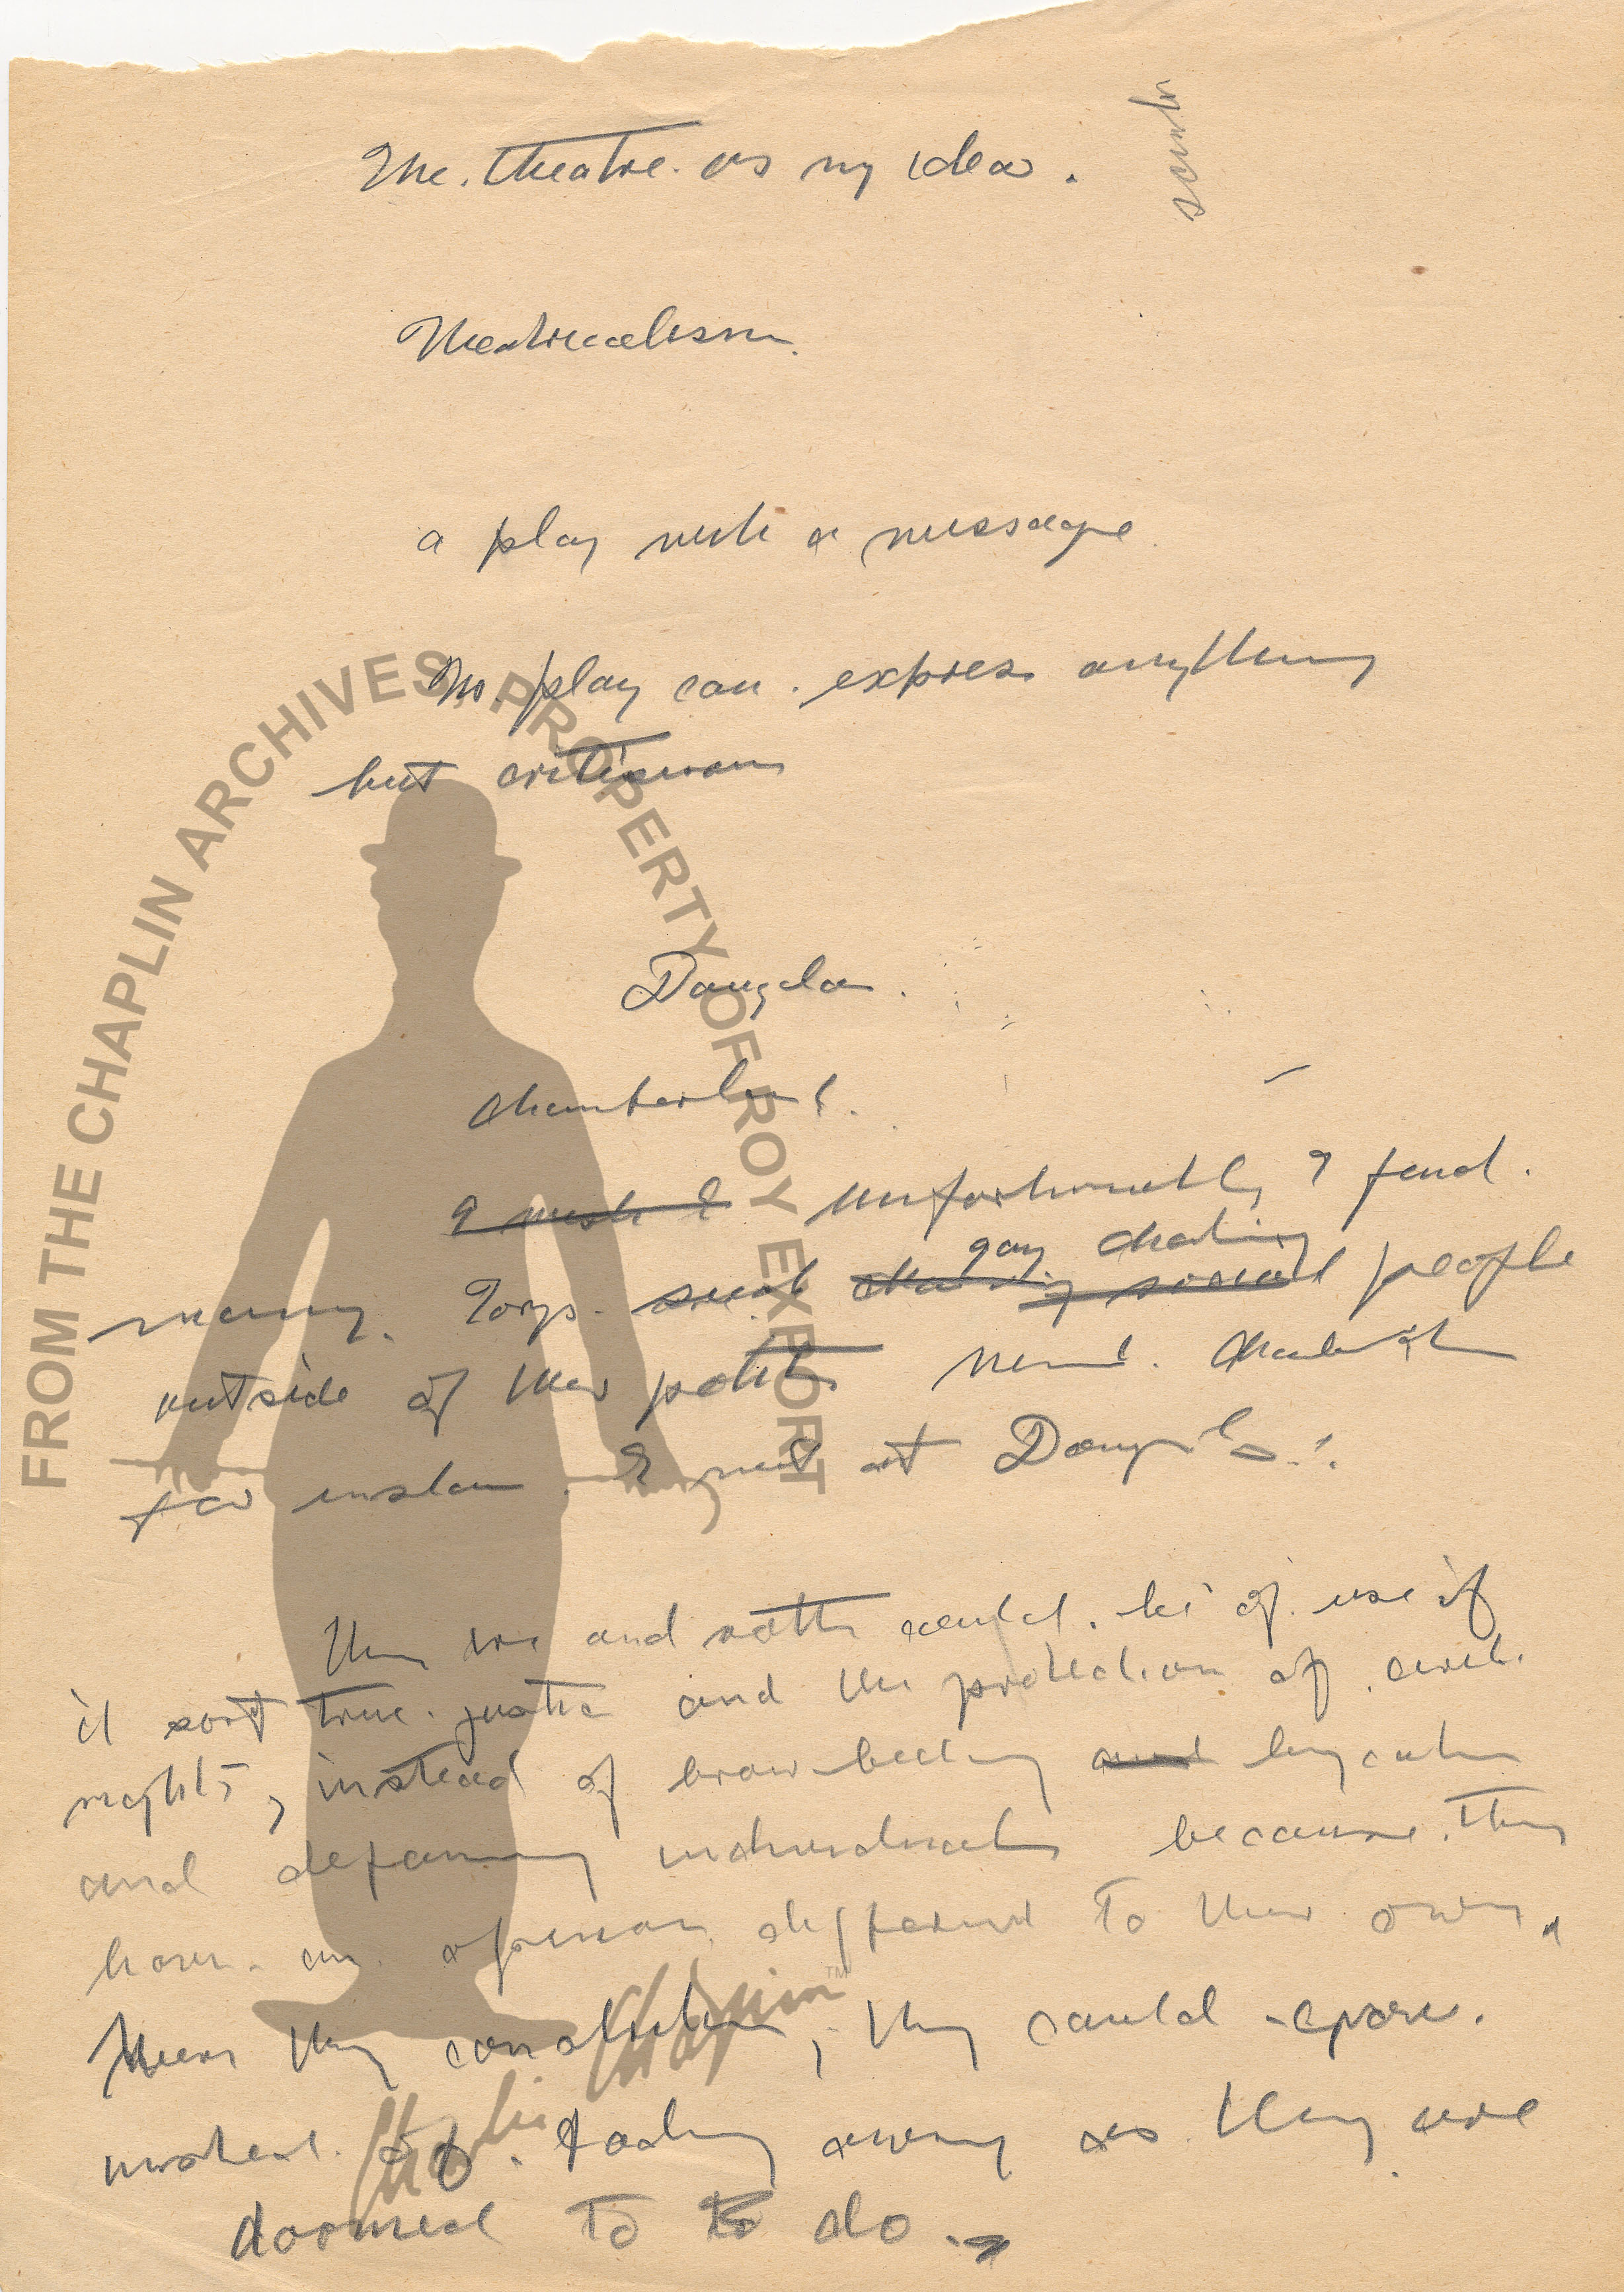 The. theatre. as my idea.
Theatricalism.
a play with a message
No. play can. express anything
but criticism
Douglas.
Chamberland.
I wish I unfortunately I find.
gay. charming
many. Torys. social charming social people
outside of their politics
for instan. I met at Douglas.
and could. be of use if
it sort true. justice and the protection of civil.
rights, instead of brow beating and
and defaming individuals because. they
have. an. opinion different to their own.
they could
instead. of. fading away as they are
doomed to to do.
FROM THE CHAPLIN ARCHIVES, PROPERTY OF ROY EXPORT
Charlie Chaplin™